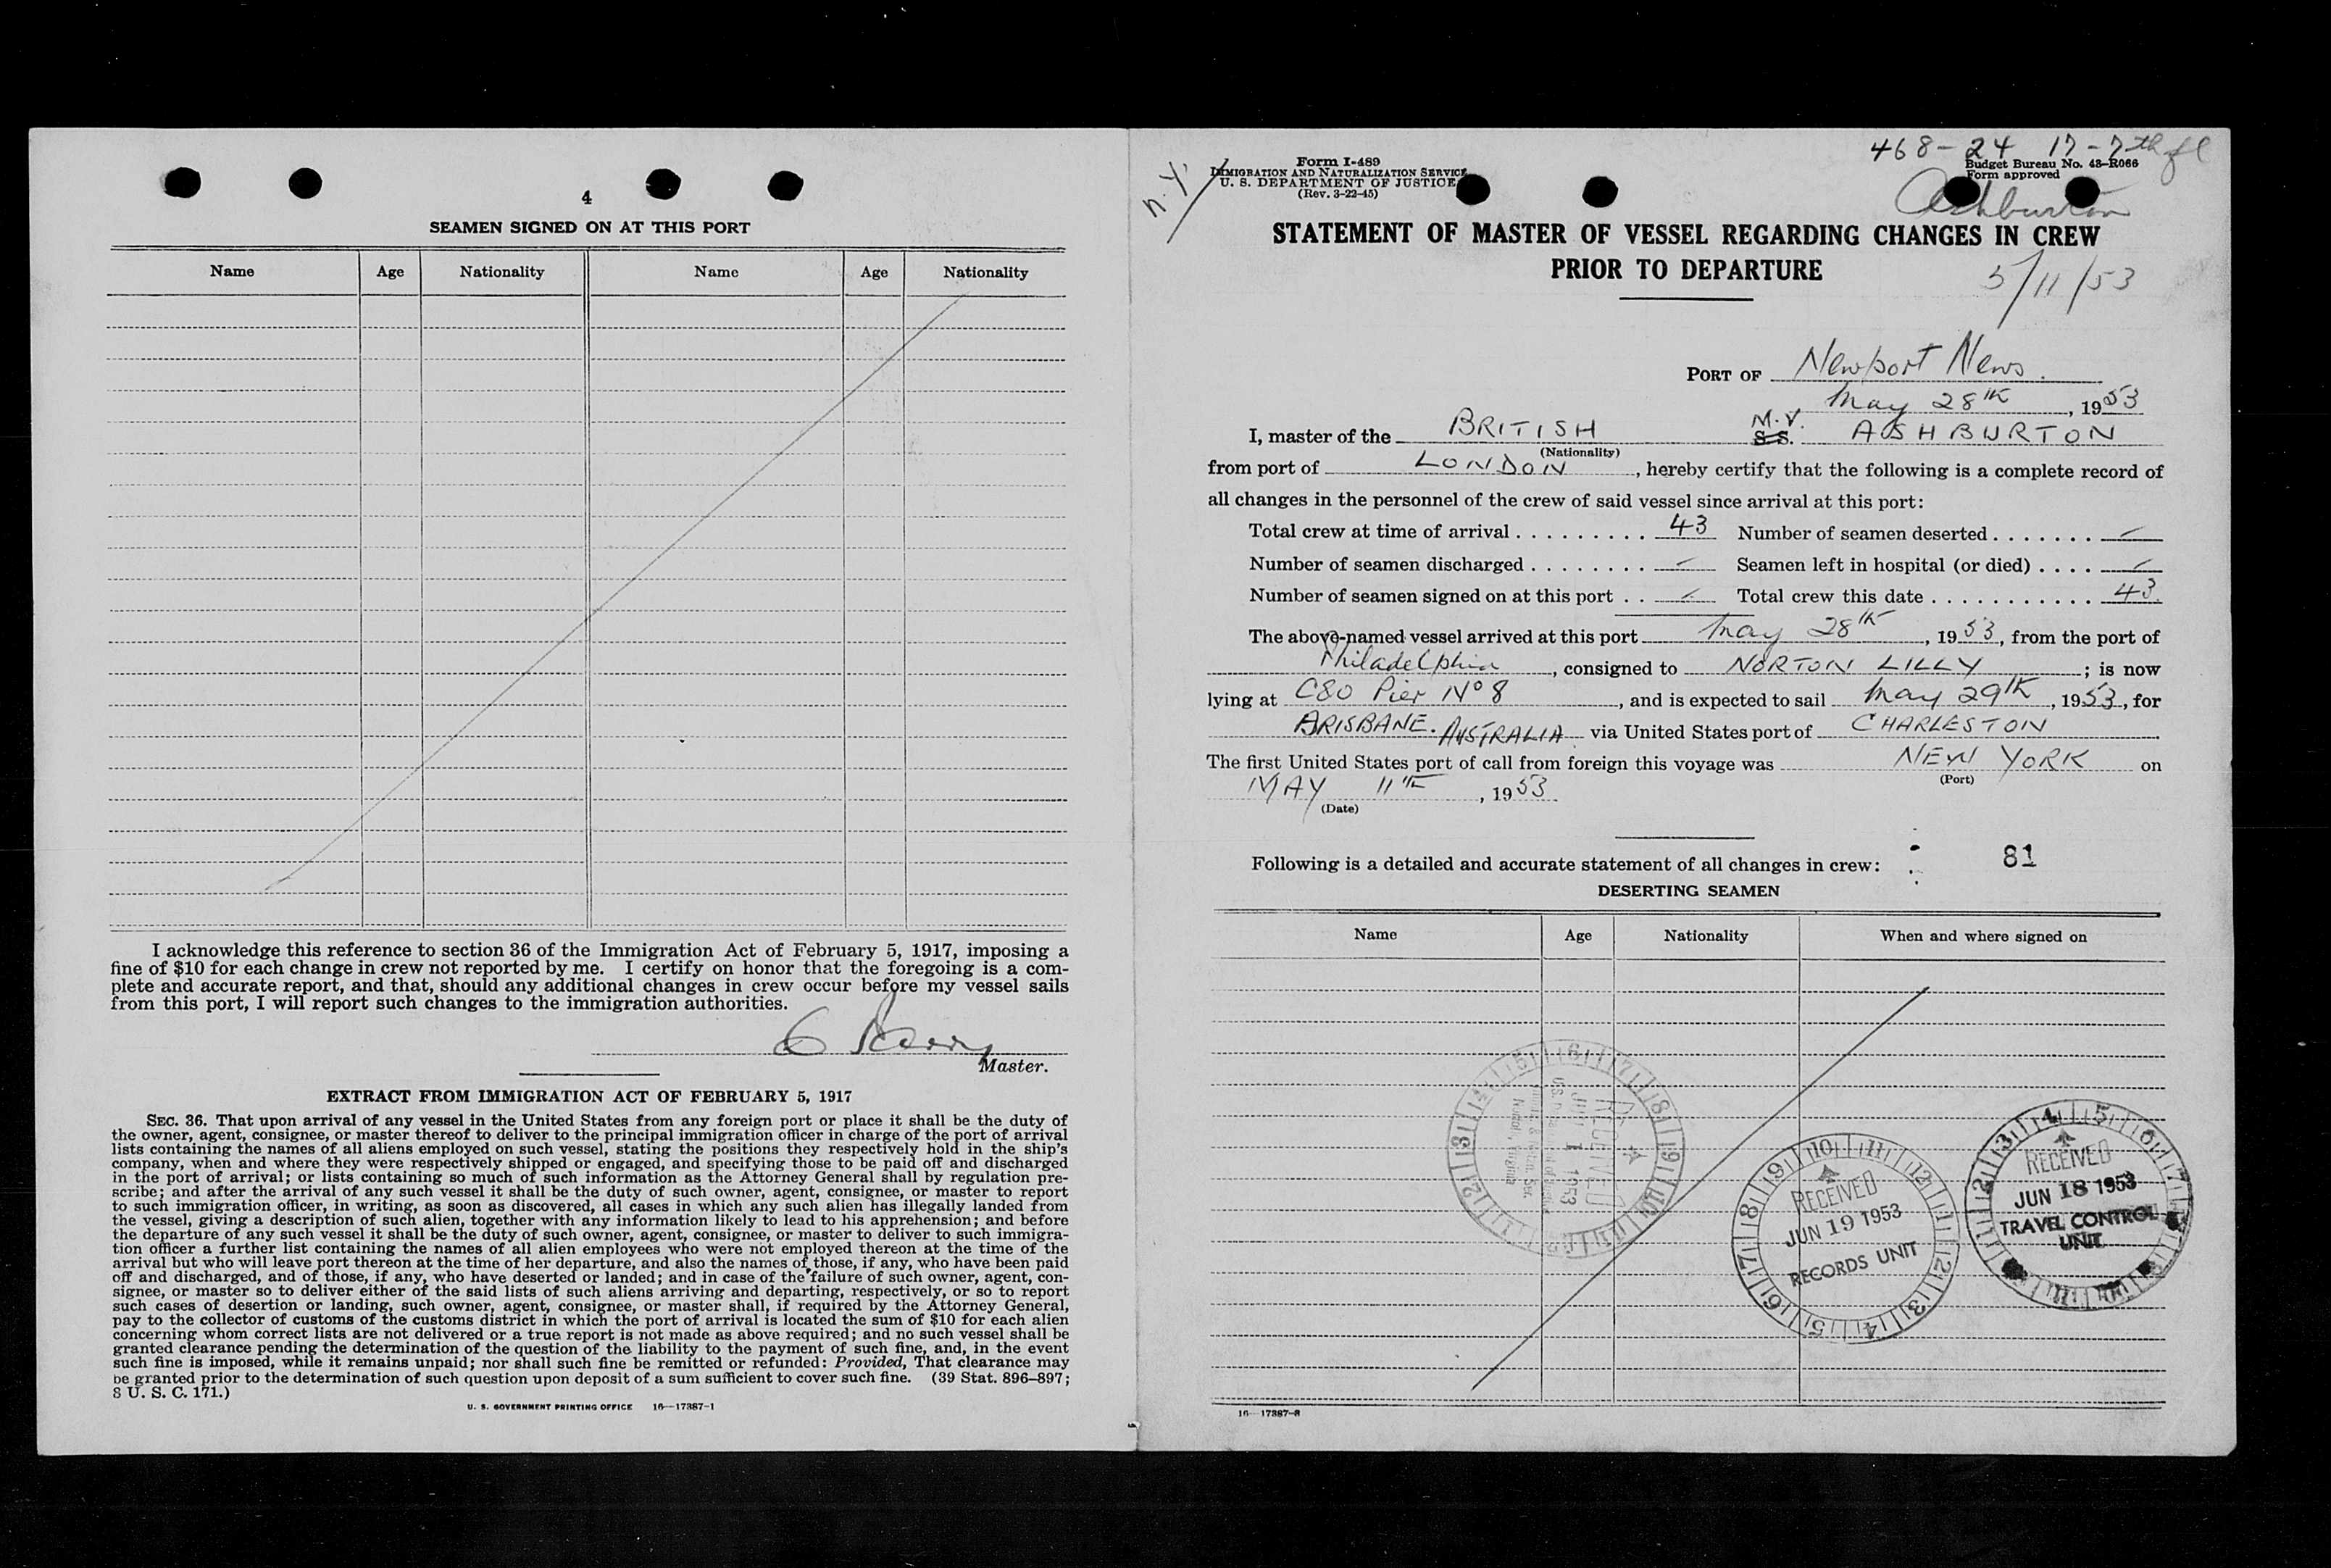 4
SEAMEN SIGNED ON AT THIS PORT
Name Age Nationality Name Age Nationality
I acknowledge this reference to section 36 of the Immigration Act of February 5, 1917, imposing a
fine of $10 for each change in crew not reported by me. I certify on honor that the foregoing is a com-
plete and accurate report, and that, should any additional changes in crew occur before my vessel sails
from this port, I will report such changes to the immigration authorities.
Master.
EXTRACT FROM IMMIGRATION ACT OF FEBRUARY 5, 1917
SEC. 36. That upon arrival of any vessel in the United States from any foreign port or place it shall be the duty of
the owner, agent, consignee, or master thereof to deliver to the principal immigration officer in charge of the port of arrival
lists containing the names of all aliens employed on such vessel, stating the positions they respectively hold in the ship's
company, when and where they were respectively shipped or engaged, and specifying those to be paid off and discharged
in the port of arrival; or lists containing so much of such information as the Attorney General shall by regulation pre-
scribe; and after the arrival of any such vessel it shall be the duty of such owner, agent, consignee, or master to report
to such immigration officer, in writing, as soon as discovered, all cases in which any such alien has illegally landed from
the vessel, giving a description of such alien, together with any information likely to lead to his apprehension; and before
the departure of any such vessel it shall be the duty of such owner, agent, consignee, or master to deliver to such immigra-
tion officer a further list containing the names of all alien employees who were not employed thereon at the time of the
arrival but who will leave port thereon at the time of her departure, and also the names of those, if any, who have been paid
off and discharged, and of those, if any, who have deserted or landed; and in case of the failure of such owner, agent, con-
signee, or master so to deliver either of the said lists of such aliens arriving and departing, respectively, or so to report
such cases of desertion or landing, such owner, agent, consignee, or master shall, if required by the Attorney General,
pay to the collector of customs of the customs district in which the port of arrival is located the sum of $10 for each alien
concerning whom correct lists are not delivered or a true report is not made as above required; and no such vessel shall be
granted clearance pending the determination of the question of the liability to the payment of such fine, and, in the event
such fine is imposed, while it remains unpaid; nor shall such fine be remitted or refunded: Provided, That clearance may
be granted prior to the determination of such question upon deposit of a sum sufficient to cover such fine. (39 Stat. 896–897;
8 U. S. C. 171.)
U. S. GOVERNMENT PRINTING OFFICE 16—17387-1
n.Y.
Form I-489
IMMIGRATION AND NATURALIZATION SERVICE
U. S. DEPARTMENT OF JUSTICE
(Rev. 3-22-45)
468-24 17-7th fl
Budget Bureau No. 43–R066
Form approved
Ashburton
STATEMENT OF MASTER OF VESSEL REGARDING CHANGES IN CREW
PRIOR TO DEPARTURE
5/11/53
PORT OF Newport News.
May 28th, 1953
I, master of the BRITISH M.V. S.S. ASHBURTON
(Nationality)
from port of LONDON, hereby certify that the following is a complete record of
all changes in the personnel of the crew of said vessel since arrival at this port:
Total crew at time of arrival . . . . . . . . . 43 Number of seamen deserted . . . . . . . –
Number of seamen discharged . . . . . . . . – Seamen left in hospital (or died) . . . . –
Number of seamen signed on at this port . . – Total crew this date . . . . . . . . . . . 43.
The above-named vessel arrived at this port May 28th, 1953, from the port of
Philadelphia, consigned to NORTON LILLY; is now
lying at C&O Pier No 8, and is expected to sail May 29th, 1953, for
BRISBANE. AUSTRALIA via United States port of CHARLESTON
The first United States port of call from foreign this voyage was NEW YORK on
(Port)
MAY 11th, 1953.
(Date)
Following is a detailed and accurate statement of all changes in crew: 81
DESERTING SEAMEN
Name Age Nationality When and where signed on
RECEIVED
1953
RECEIVED
JUN 19 1953
RECORDS UNIT
RECEIVED
JUN 18 1953
TRAVEL CONTROL
UNIT
16—17387-3